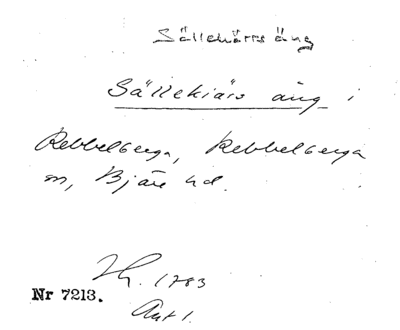 Sällekärrs äng
Sällekiärs äng i
Rebbelberga, Rebbelberga
sn, Bjäre hd.
1783
Nr 7213.
Akt 1.